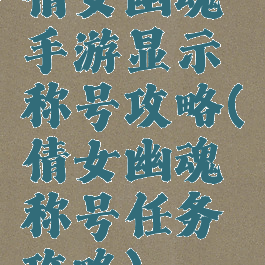 倩女幽魂
手游显示
称号攻略(
倩女幽魂
称号任务
攻略)